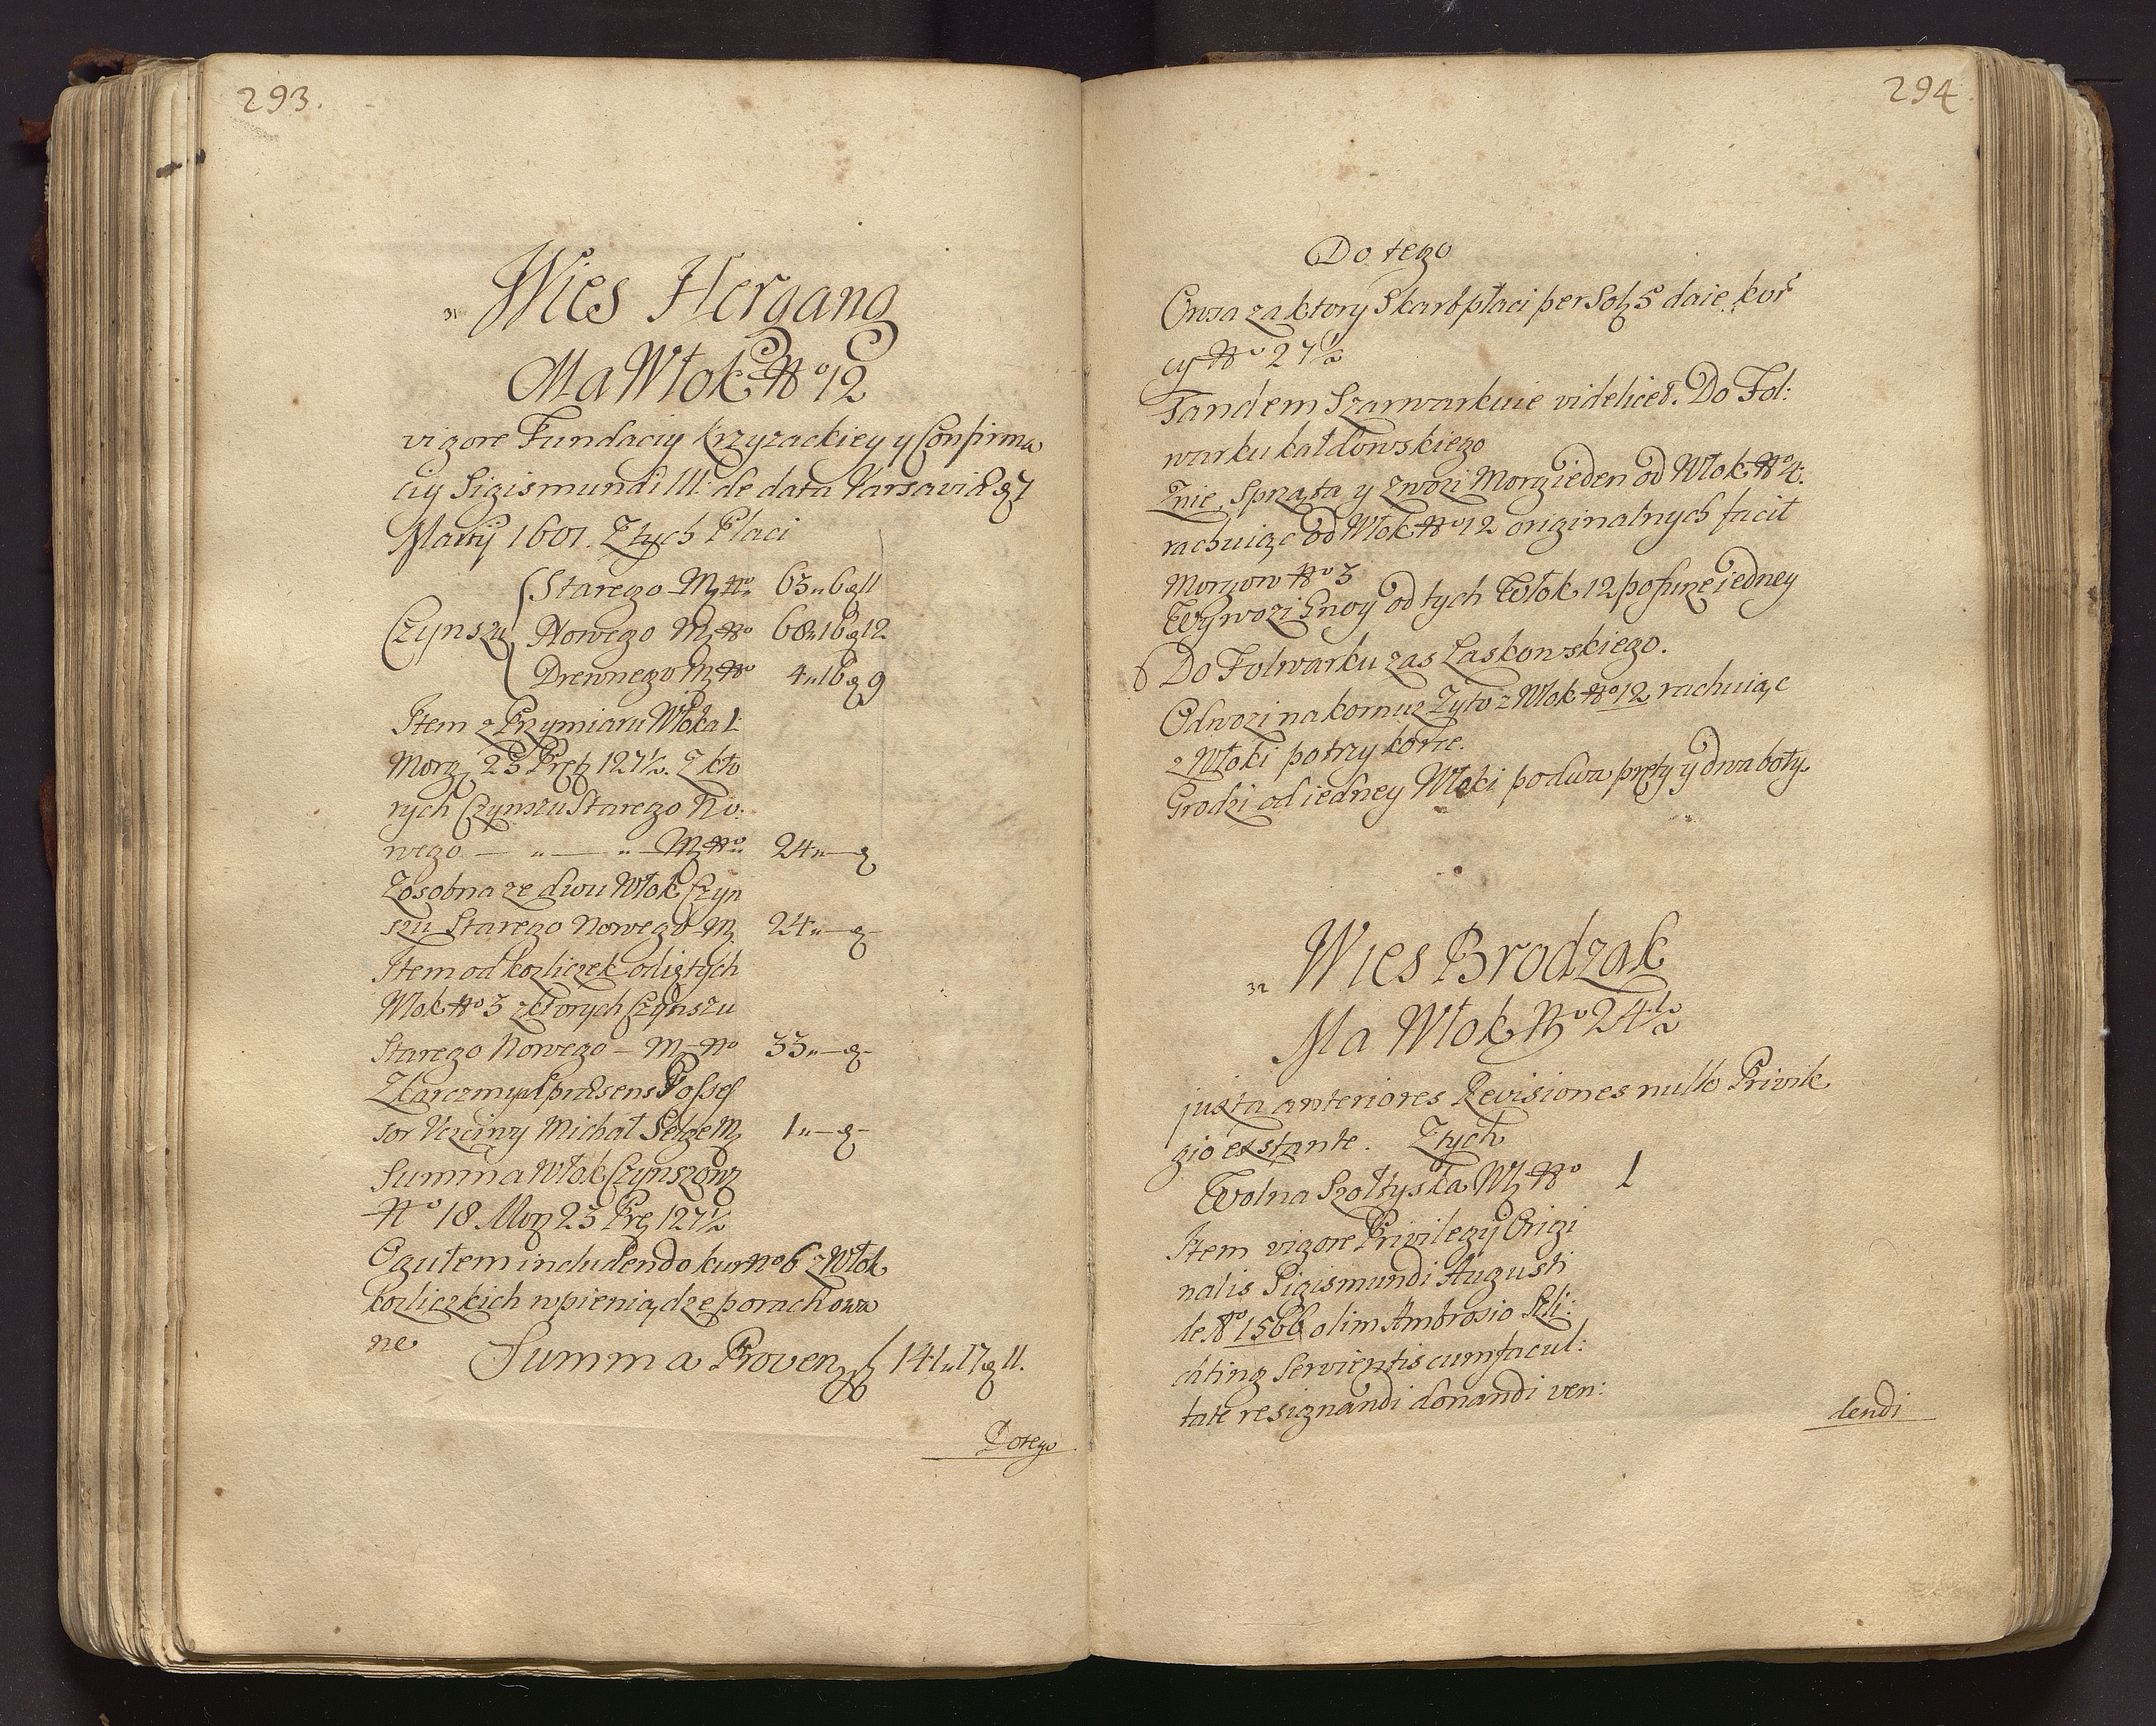 293.
Wies Hergang
Ma Włok No 12
vigore Fundaciy Krzyzackiey y Confirma
ciy Sigismundi III: de data Varsaviæ 7
Martij 1601. Z tych Płaci
Starego M No 63 „ 6 g 11
Czynszu Nowego M No 68 „ 16 g 12
Drewnego M No 4 „ 16 g 9
Item z Przymiaru Włoka 1:
Morg 23 Pręt 127½. Z kto
rych Czynszu Starego No:
wego — „ — „ — M No 24 „ — g
Zosobna ze dwu Włok Czyn
szu Starego Nowego M 24 „ — g —
Item od Kozliczek odiętych
Włok No 3 z ktorych Czynszu
Starego Nowego — M No 33 „ — g —
Z karczmy præsens Posses
sor Uczciwy Michał Selge M 1 „ — g —
Summa Włok Czynszow
No 18 Morg 23 Prę 127½
Ogułem includendo kur No 6 z Włok
Kozliczkich w pieniądze porachowa
ne
Summa Proven 141 „ 17 g 11.
Do tego
294
Do tego
Owsa za ktory Skarb płaci per Sol 5 daie kor
cy No 27½
Tandem Szarwarkuie videlicet. Do Fol:
warku Kałdowskiego
Znie, Sprząta y Zwozi Morg ieden od Włok No 4.
rachuiąc od Włok No 12 originalnych facit
Morgow No 3
Wywozi Gnoy od tych Włok 12 po furze iedney
Do Folwarku zas Laskowskiego.
Odwozi na komur Zyto z Włok No 12 rachuiąc
z Włoki po trzy korce.
Grodzi od iedney Włoki po dwa pręty y dwa boty.
Wies Brodzak
Ma Włok No 24½
juxta anteriores Revisiones nullo Privile
gio exstante. Z tych
Wolna Szołtyska Wł No 1
Item vigore Privilegij Origi
nalis Sigismundi Augusti
de Ao 1566 olim Ambrosio Szli:
chting Servientis cum facul:
tate resignandi donandi ven:
dendi